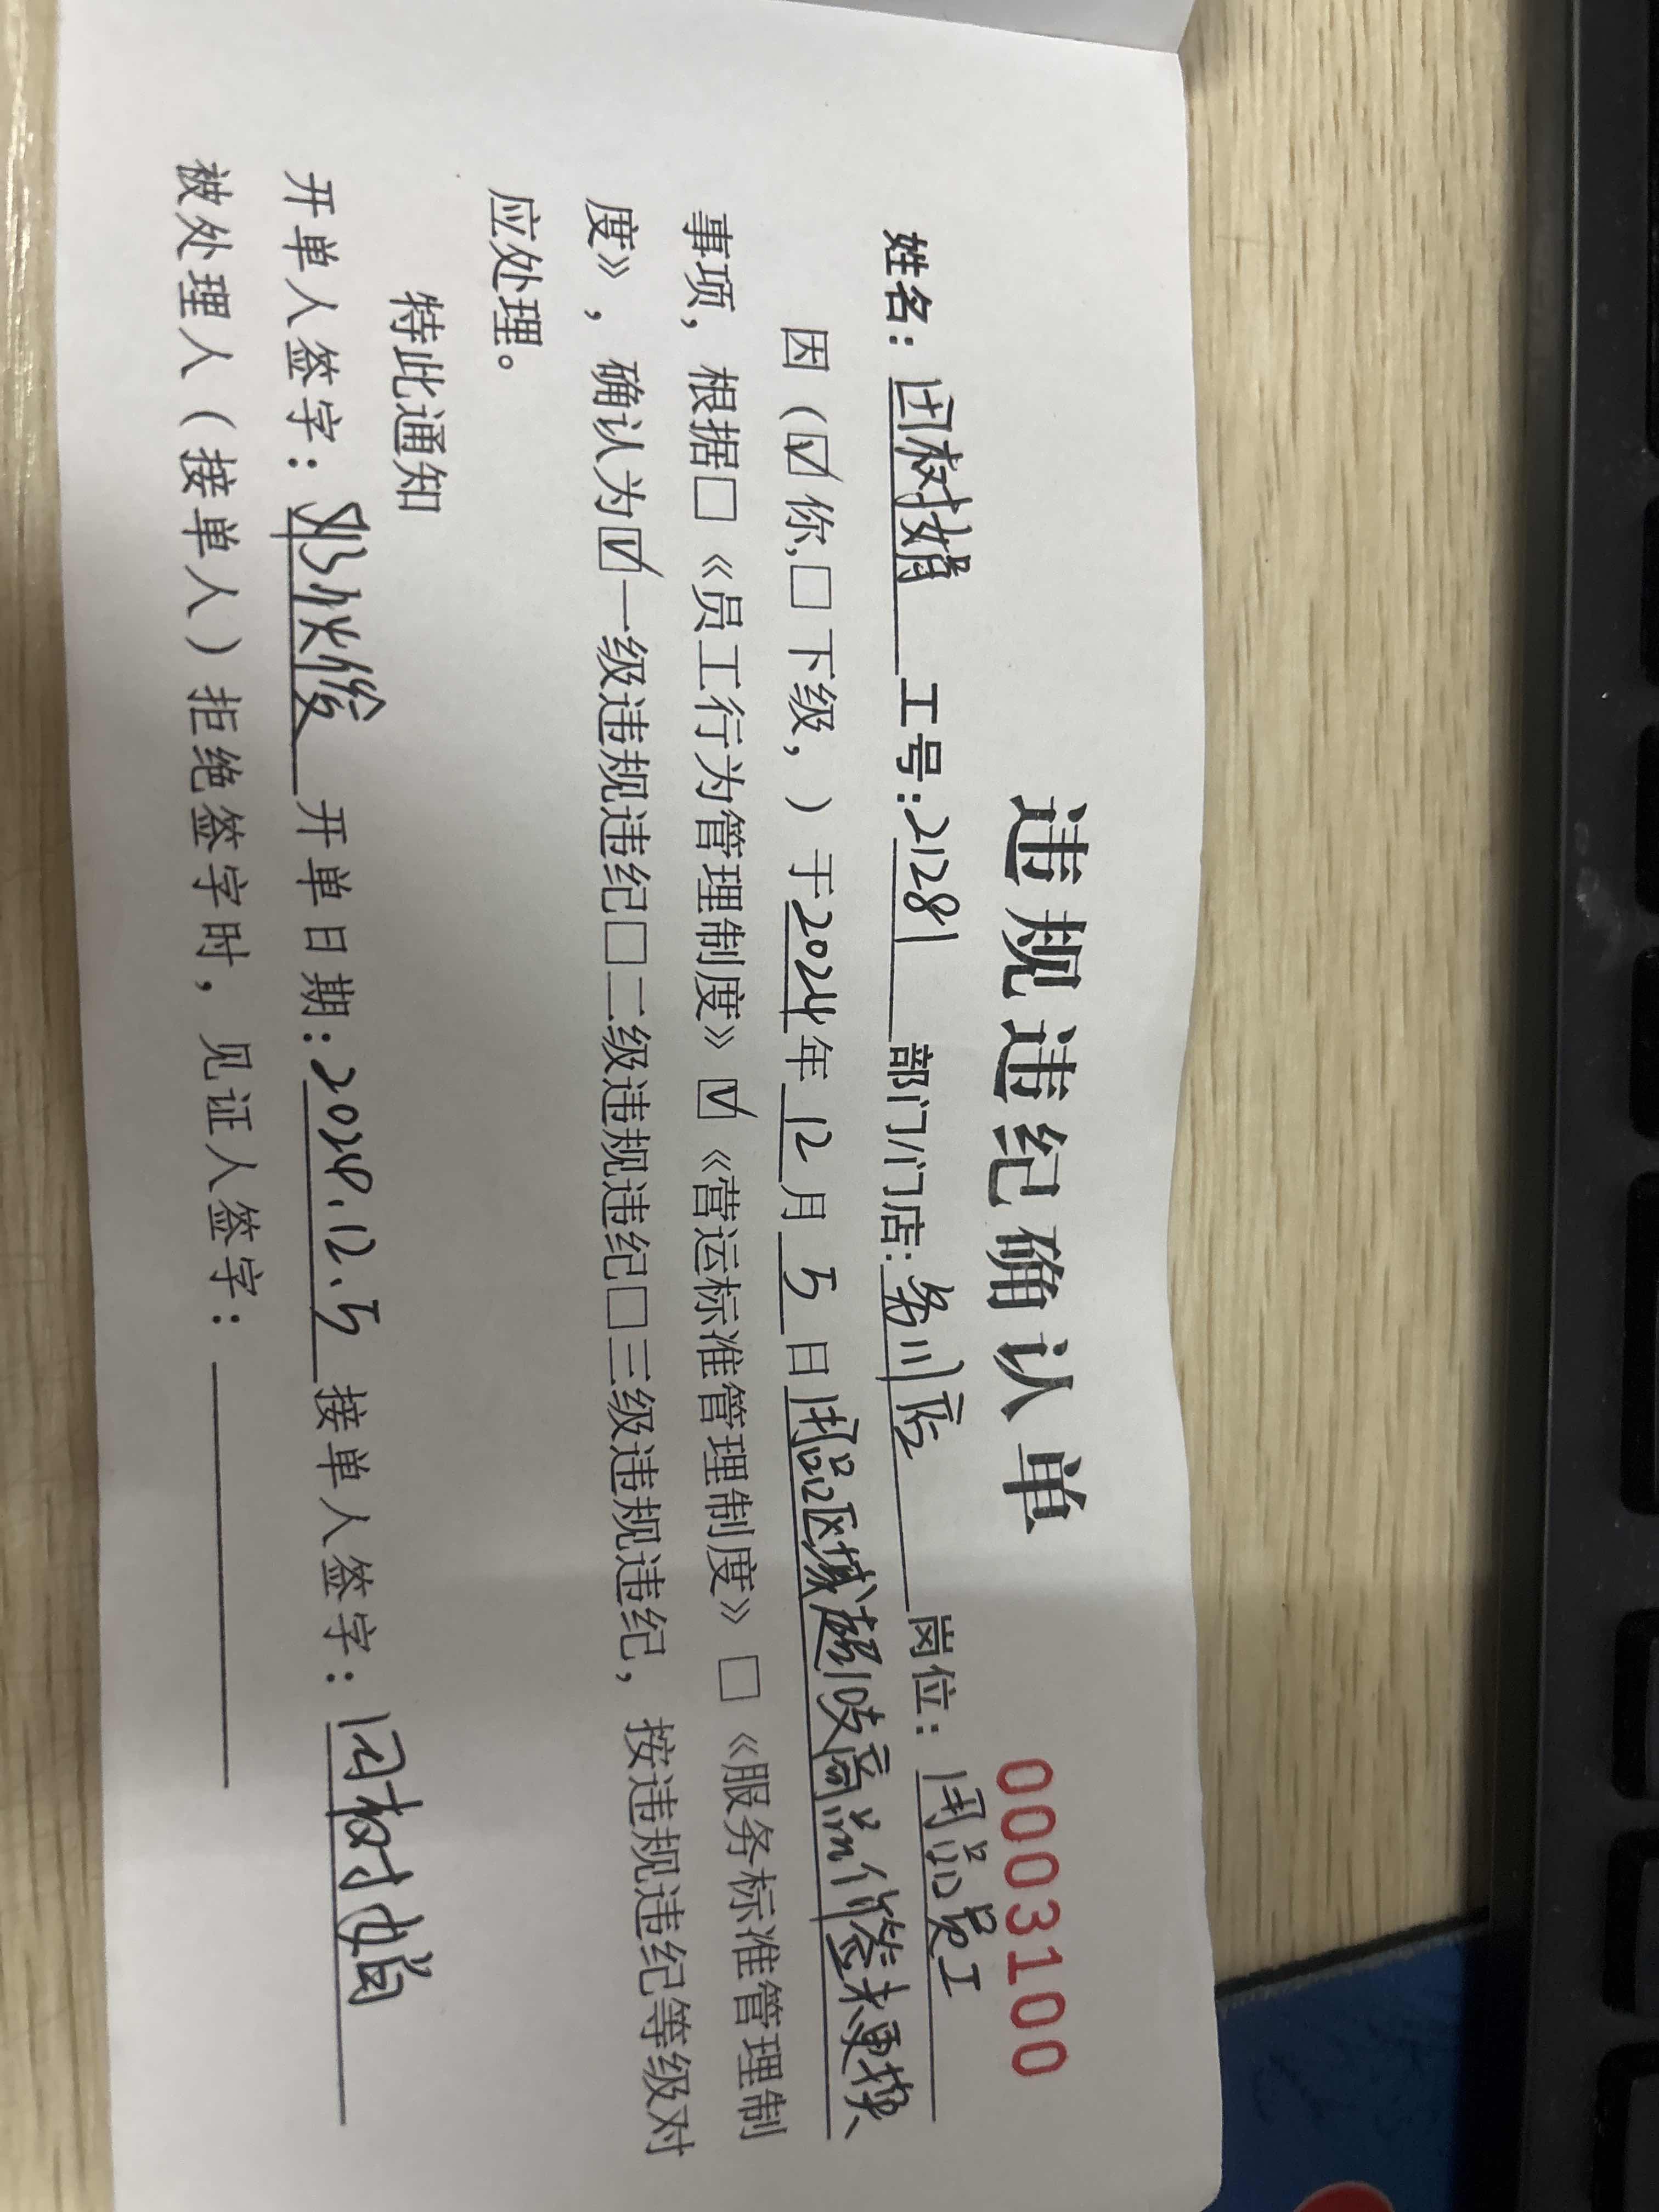 违规违纪确认单 0003100
姓名：田树娟 工号:21281 部门/门店:务川店 岗位：用品员工
因（☑你,□下级，）于2024年12月5日用品区域超10支商品价签未更换
事项，根据□《员工行为管理制度》☑《营运标准管理制度》□《服务标准管理制
度》，确认为☑一级违规违纪□二级违规违纪□三级违规违纪，按违规违纪等级对
应处理。
特此通知
开单人签字： 开单日期:2024.12.5 接单人签字：田树娟
被处理人（接单人）拒绝签字时，见证人签字：